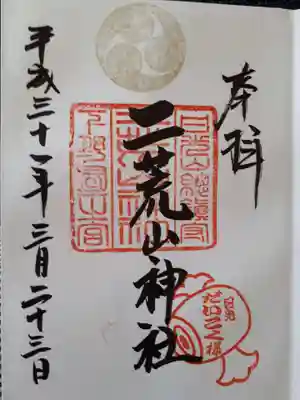 奉拝
二荒山神社
平成三十一年三月二十三日
日光
だいこく様
二荒山神社
下野國一之宮